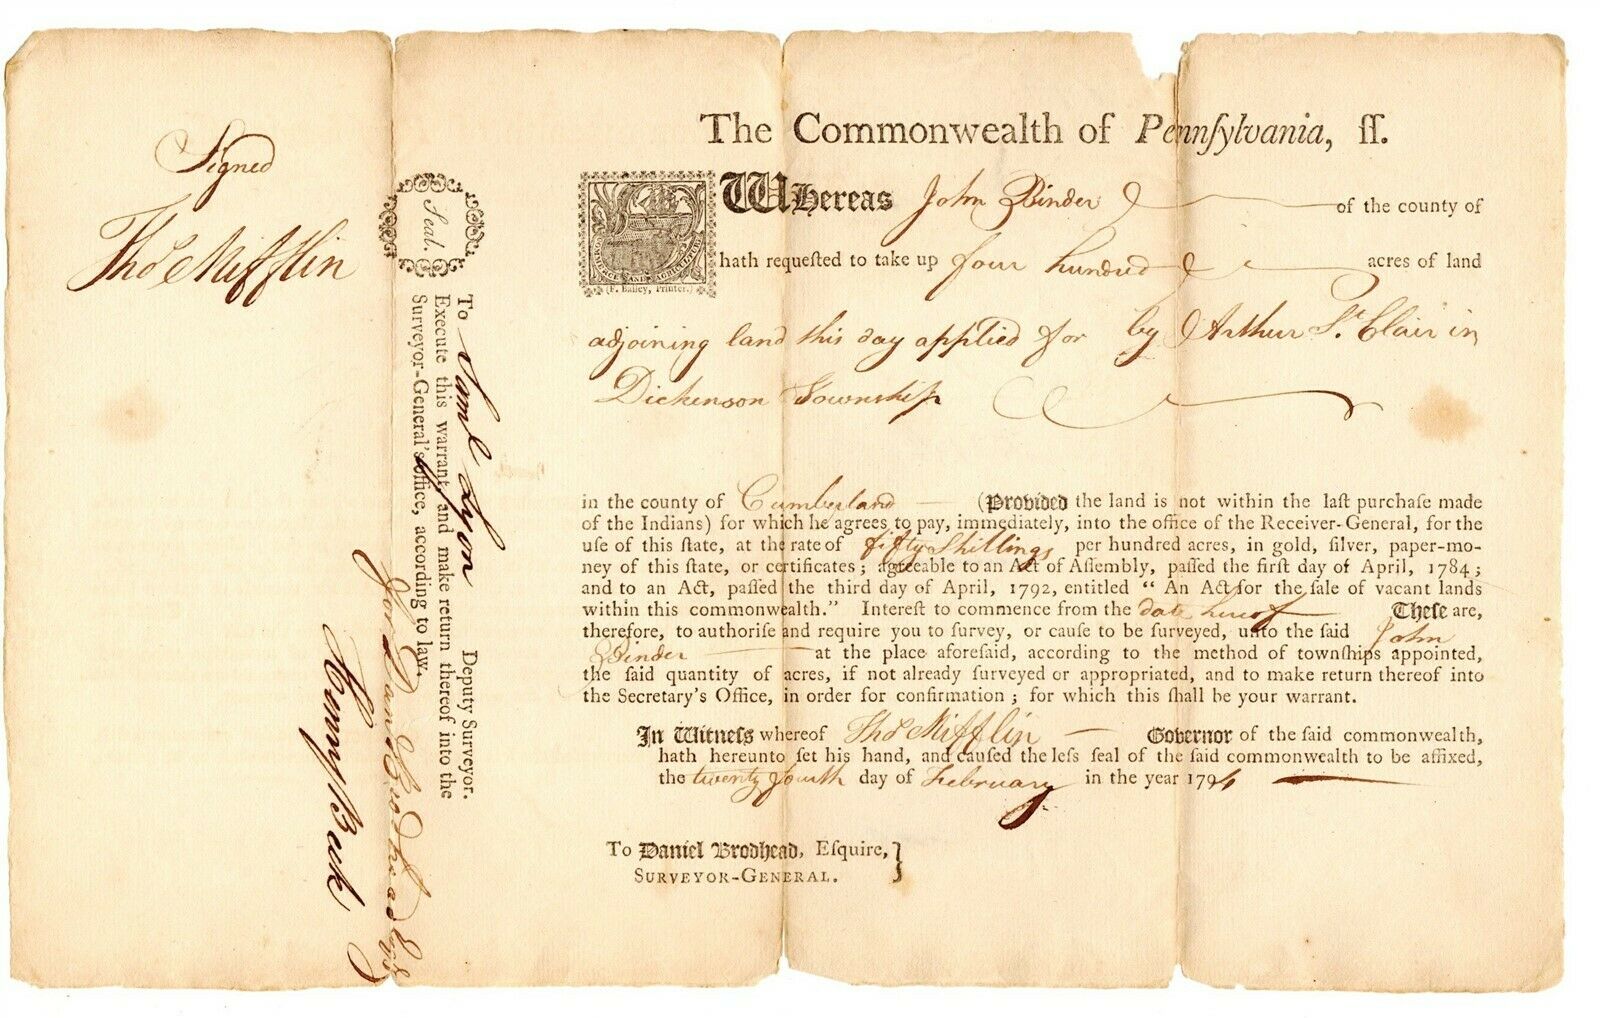 Signed
Tho.s Mifflin
Seal.
To Saml Lyon Deputy Surveyor.
Execute this warrant, and make return thereof into the
Surveyor-General's office, according to law.
for Dan.l Brodhead Esqr S G
The Commonwealth of Pennſylvania, ſſ.
Whereas John Binder of the county of
hath requeſted to take up four hundred acres of land
COMMERCE AND AGRICULTURE
(F. Bailey, Printer.)
adjoining land this day applied for by Arthur St. Clair in
Dickenson Township
in the county of Cumberland (Provided the land is not within the laſt purchaſe made
of the Indians) for which he agrees to pay, immediately, into the office of the Receiver-General, for the
uſe of this ſtate, at the rate of fifty Shillings per hundred acres, in gold, ſilver, paper-mo-
ney of this ſtate, or certificates; agreeable to an Act of Aſſembly, paſſed the firſt day of April, 1784;
and to an Act, paſſed the third day of April, 1792, entitled "An Act for the ſale of vacant lands
within this commonwealth." Intereſt to commence from the date hereof Theſe are,
therefore, to authoriſe and require you to ſurvey, or cauſe to be ſurveyed, unto the ſaid John
Binder at the place aforeſaid, according to the method of townſhips appointed,
the ſaid quantity of acres, if not already ſurveyed or appropriated, and to make return thereof into
the Secretary's Office, in order for confirmation; for which this ſhall be your warrant.
In Witneſs whereof Tho.s Mifflin Governor of the ſaid commonwealth,
hath hereunto ſet his hand, and cauſed the leſs ſeal of the ſaid commonwealth to be affixed,
the twenty fourth day of February in the year 1794
To Daniel Brodhead, Eſquire, }
SURVEYOR-GENERAL.